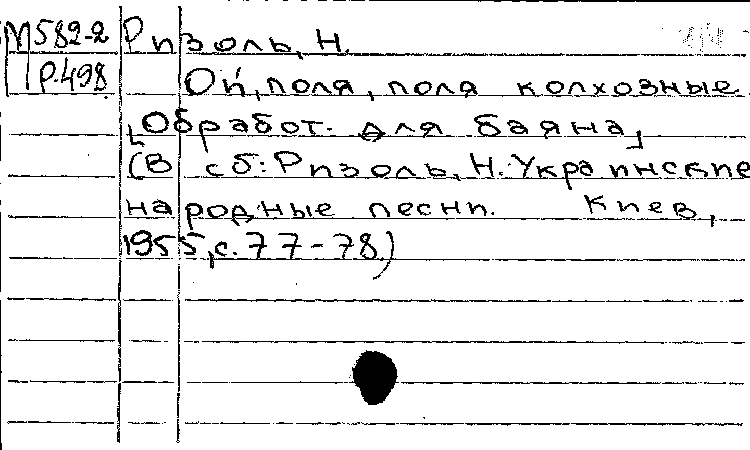 М582-2 Ризоль, Н.
Р.498 Ой, поля, поля колхозные
[Обработ. для баяна]
(В сб: Ризоль, Н. Украинские
народные песни. Киев,
1955, с. 77-78.)